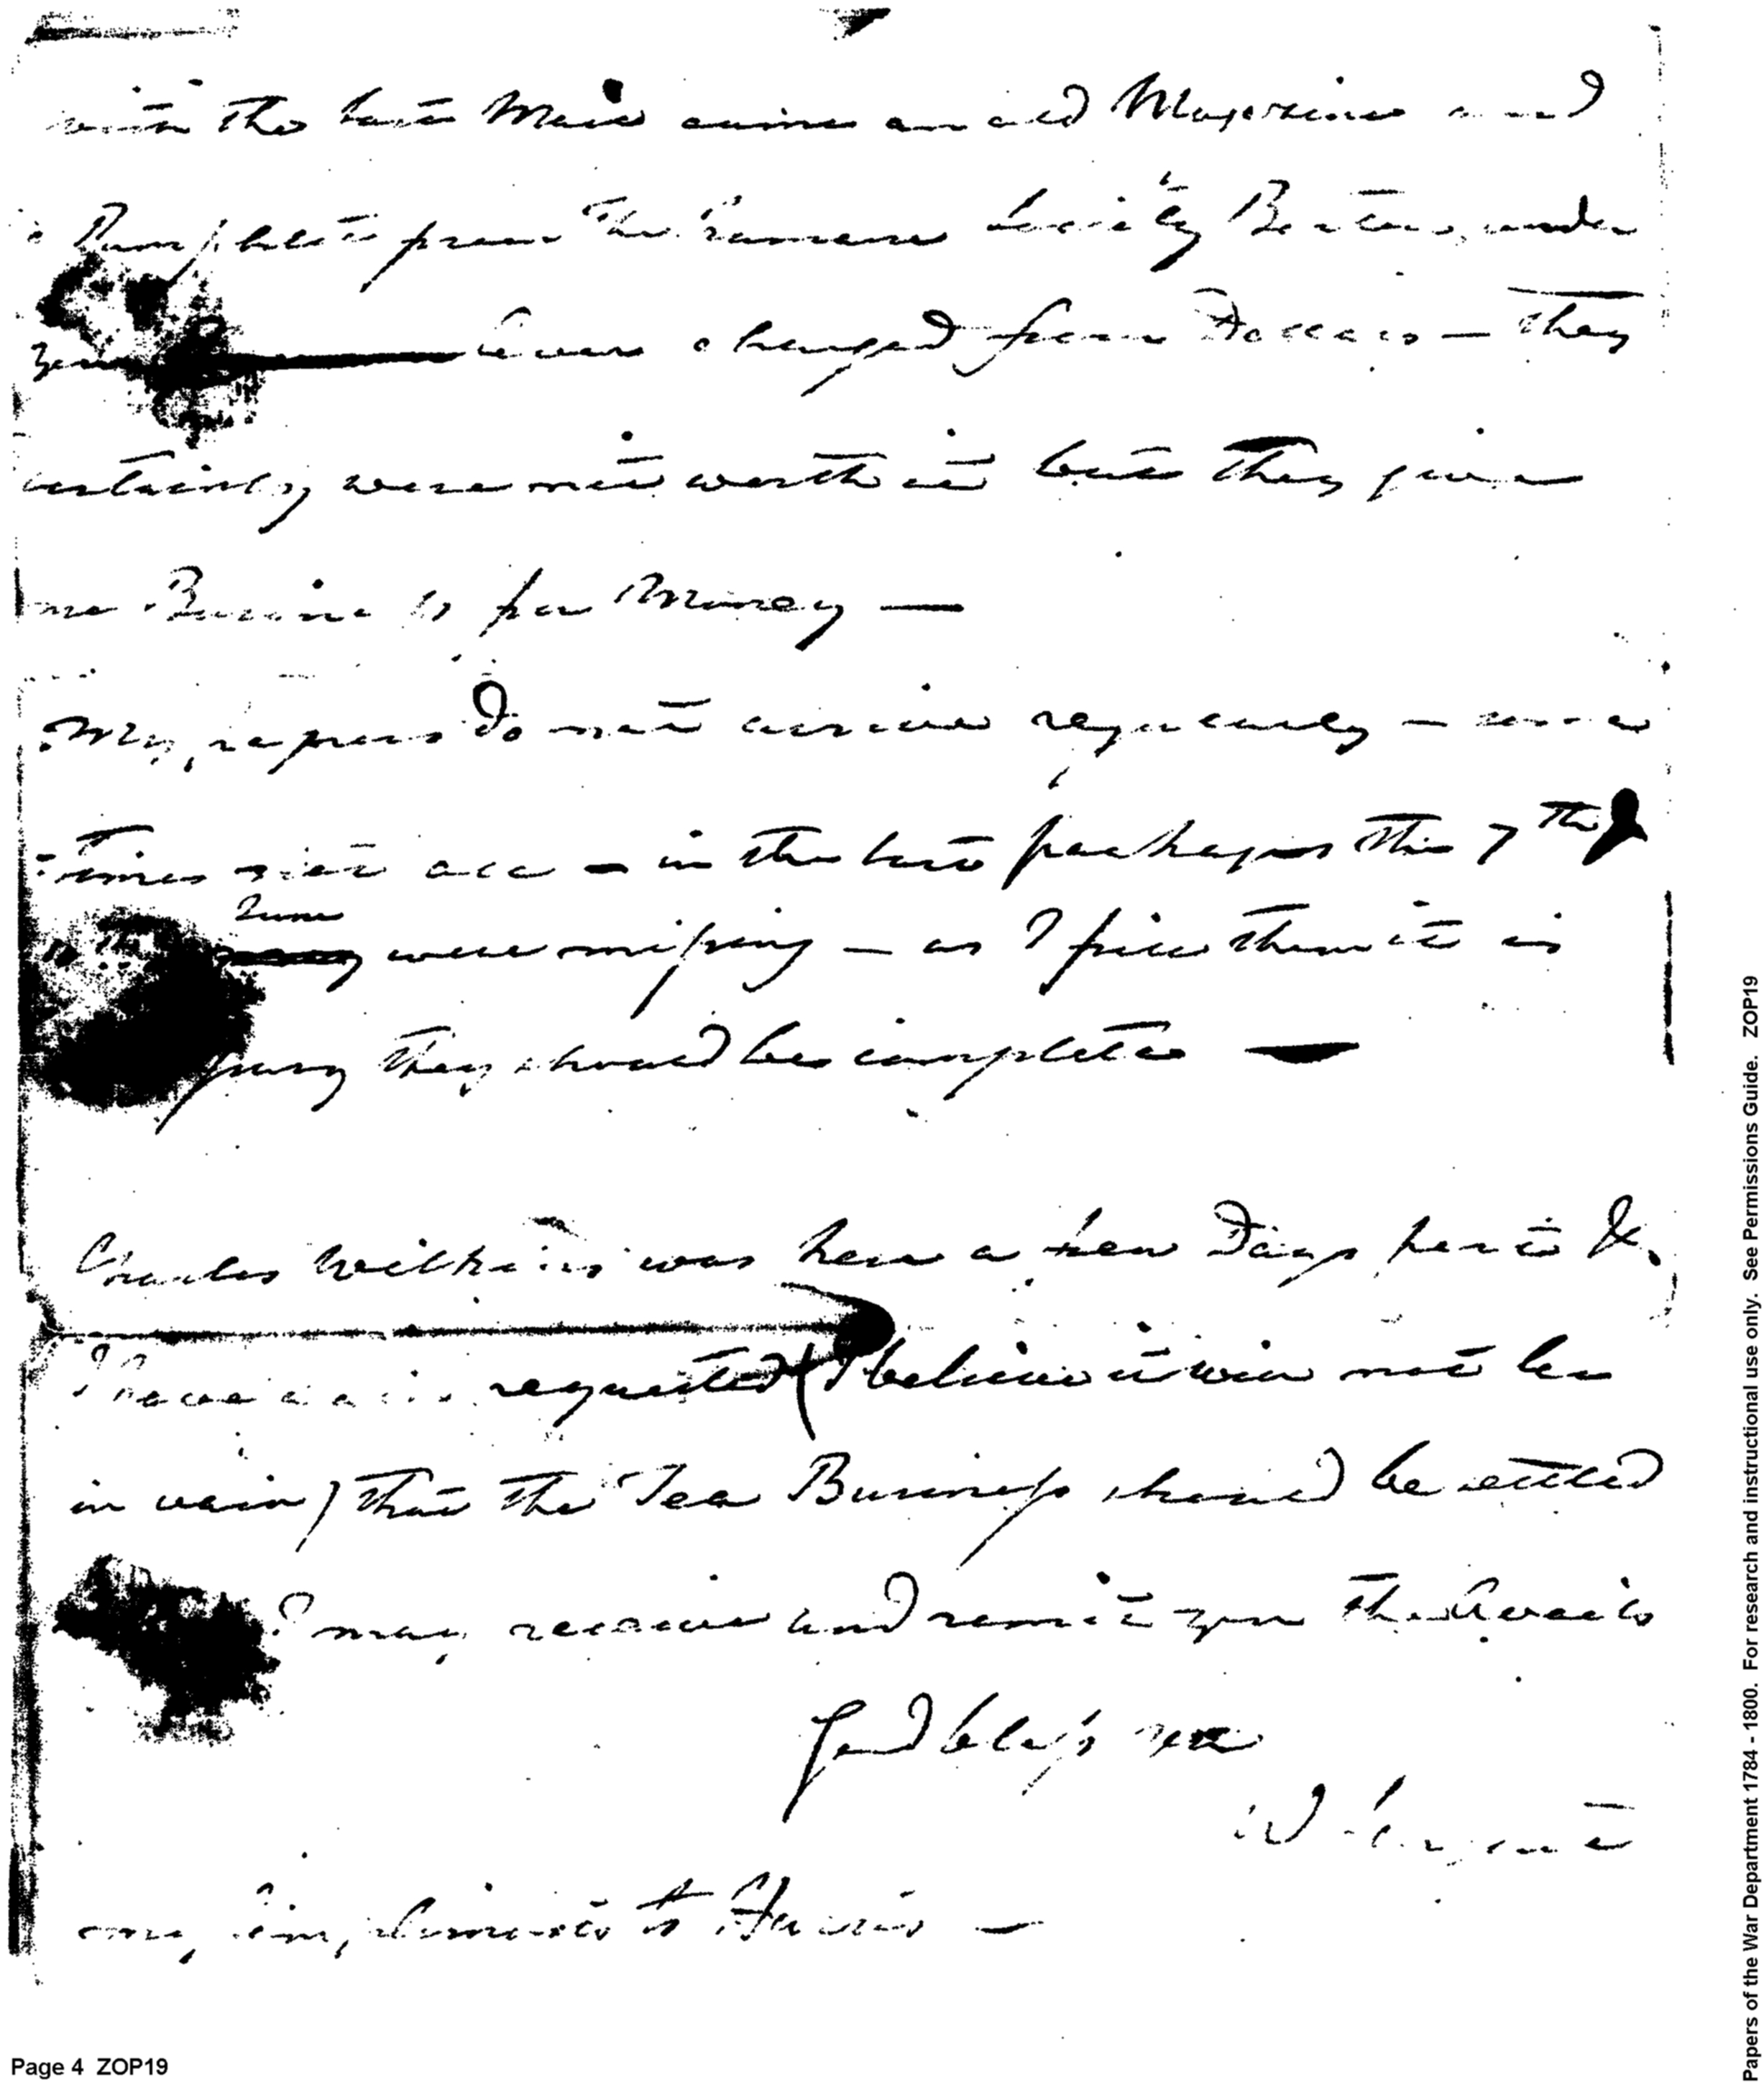 with the last Mail came an old Magazine and
a Pamphlet from the Humane Society Boston, under
your Cover charged four Dollars — they
certainly were not worth it but they give
me Business for Money —
My papers do not arrive regularly — some
times not all — in the last packages the 7th &
10th June were missing — as I file them it is
they should be complete —
Charles Wilkins was here a few Days past &
I have again requested (I believe it will not be
in vain) that the Tea Business should be settled
I may receive and remit you the Avails
God bless you
my Compliments to Harris —
Page 4 ZOP19
Papers of the War Department 1784 - 1800. For research and instructional use only. See Permissions Guide. ZOP19